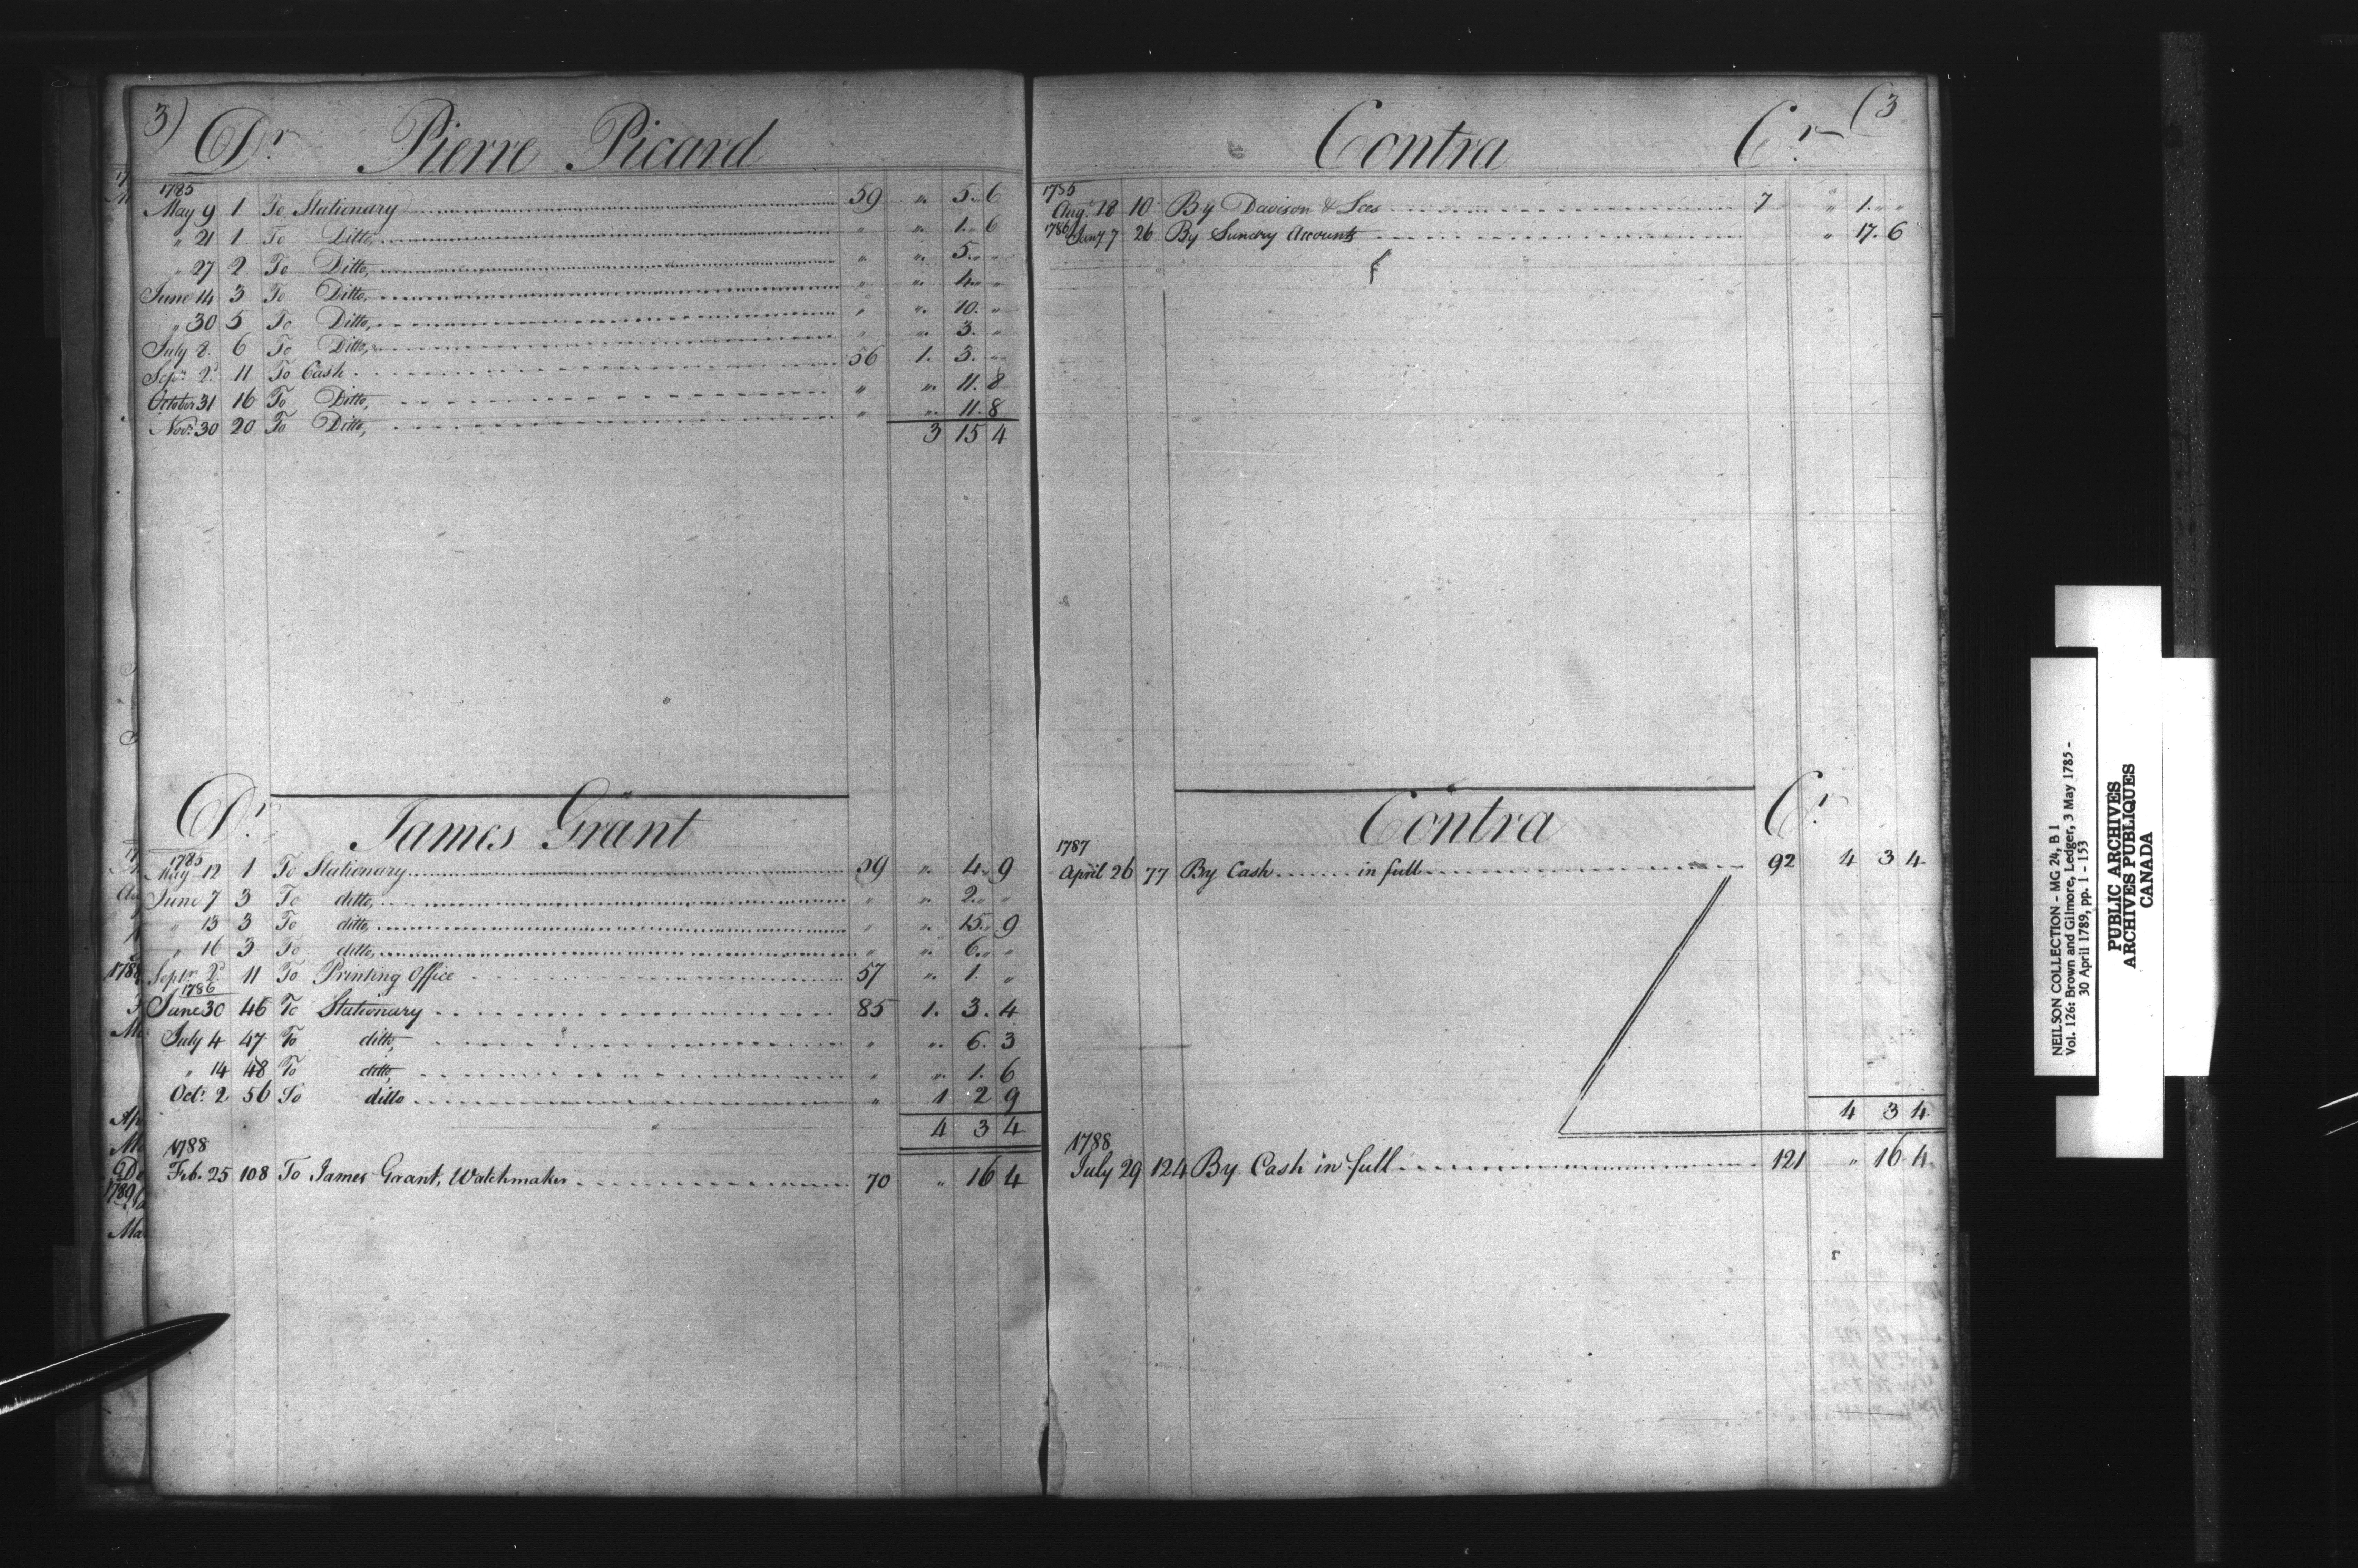 3)
Dr Pierre Picard
1785
May 9 1 To Stationary 59 " 5 " 6
" 21 1 To Ditto, " " 1 " 6
" 27 2 To Ditto, " " 5 " "
June 14 3 To Ditto, " " 4 " "
" 30 5 To Ditto, " " 10 . "
July 8 6 To Ditto, " " 3 . "
Sepr. 2d 11 To Cash 56 1. 3. "
October 31 16 To Ditto, " " 11. 8
Novr. 30 20 To Ditto, " " 11. 8
3 15 4
Dr James Grant
1785
May 12 1 To Stationary 59 " 4 " 9
June 7 3 To ditto, " " 2 " "
" 13 3 To ditto, " " 15 " 9
" 16 3 To ditto, " " 6 " "
Septr. 2d 11 To Printing Office 57 " 1. "
1786
June 30 46 To Stationary 85 1. 3. 4
July 4 47 To ditto, " " 6. 3
" 14 48 To ditto, " " 1. 6
Octr. 2 56 To ditto " 1 2 9
4 3 4
1788
Feb. 25 108 To James Grant, Watchmaker 70 " 16 4
Contra Cr (3
1785
Augt. 18 10 By Davison & Lees 7 " 1. " "
1786 Jany. 7 26 By Sundry Accounts " 17. 6
Contra Cr.
1787
April 26 77 By Cash in full 92 4 3 4
4 3 4
1788
July 29 124 By Cash in full 121 " 16 4
NEILSON COLLECTION - MG 24, B 1
Vol. 126: Brown and Gilmore, Ledger, 3 May 1785 -
30 April 1789, pp. 1 - 153
PUBLIC ARCHIVES
ARCHIVES PUBLIQUES
CANADA